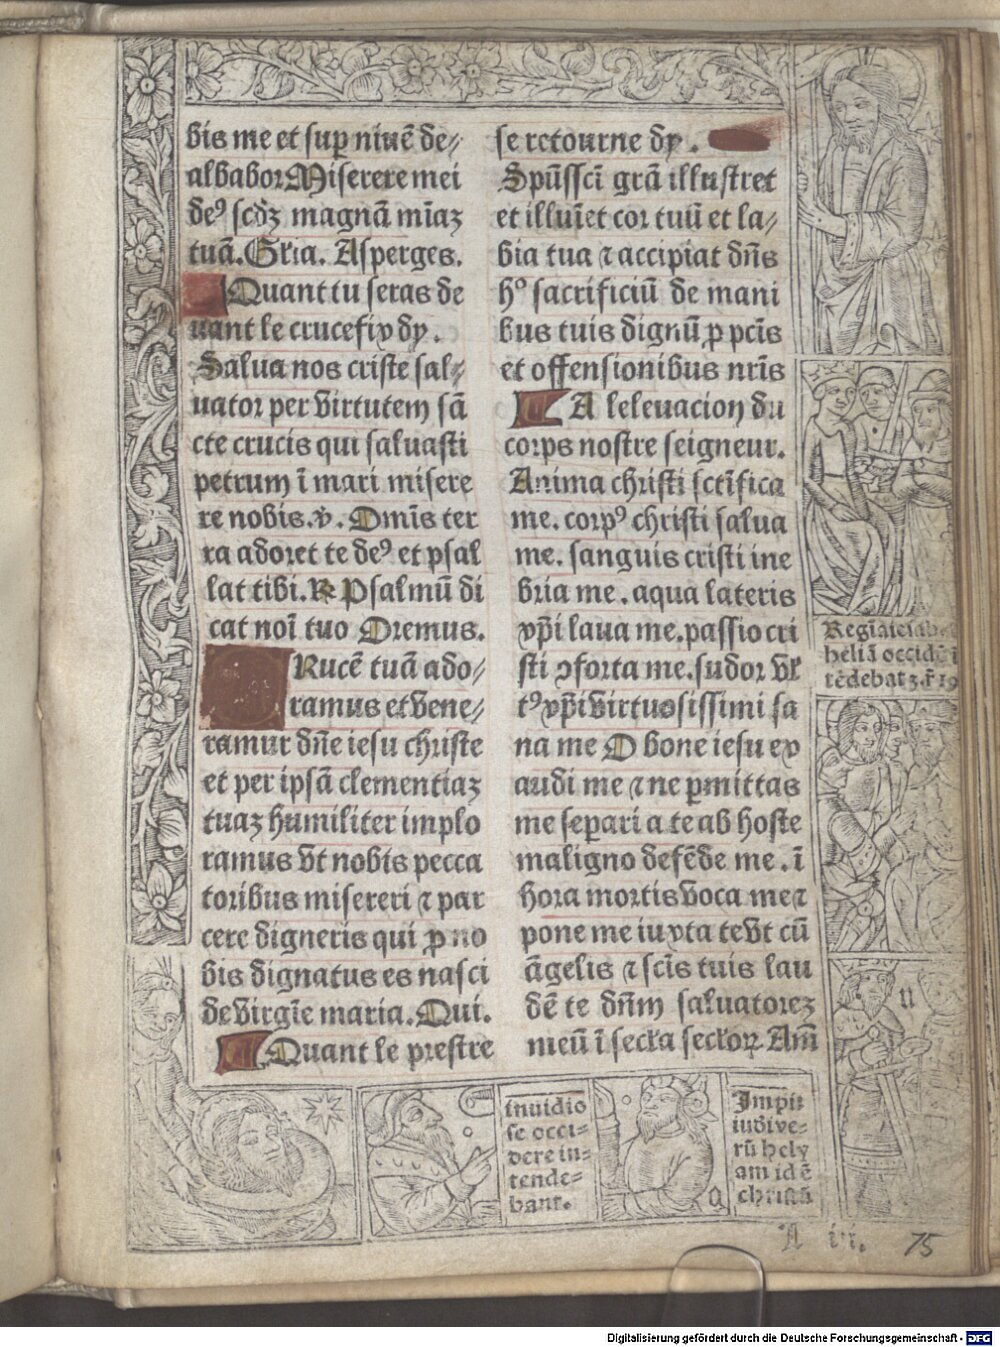 bis me et suꝑ niuē de⸗
albabor Miserere mei
deꝰ scd̄ꝫ magnā mīaꝫ
tuā. Gľia. Asperges.
Quant tu seras de
uant le crucefix dy.
Salua nos criste sal⸗
uator per virtutem sā
cte crucis qui saluasti
petrum ī mari misere
re nobis. ℣. Omīs ter
ra adoret te deꝰ et psal
lat tibi. ℟ Psalmū di
cat noī tuo Oremus.
Rucē tuā ado⸗
ramus et vene⸗
ramur dn̄e iesu christe
et per ipsā clementiaꝫ
tuaꝫ humiliter implo
ramus vt nobis pecca
toribus misereri ⁊ par
cere digneris qui ꝓ no
bis dignatus es nasci
de virgīe maria. Qui.
Quant le prestre
se retourne dy.
Spūssc̄i grā illustret
et illuīet cor tuū et la⸗
bia tua ⁊ accipiat dn̄s
hᵒ sacrificiū de mani
bus tuis dignū ꝓ pctīs
et offensionibus nrīs
A leleuacion du
corps nostre seigneur.
Anima christi sctīfica
me. corpꝰ christi salua
me. sanguis cristi ine
bria me. aqua lateris
xp̄i laua me. passio cri
sti ꝯforta me. sudor vľ
tꝰ xp̄i virtuosissimi sa
na me O bone iesu ex
audi me ⁊ ne ꝑmittas
me seꝑari a te ab hoste
maligno defēde me. ī
hora mortis voca me ⁊
pone me iuxta te vt cū
āgelis ⁊ scīs tuis lau
dē te dn̄m saluatoreꝫ
meū ī secľa secľoꝝ Am̄
Regīa iesabel
heliā occidē ī
tēdebat 3. r̄ 19
u
inuidio
se occi⸗
dere in⸗
tende⸗
bant.
a
Impii
iudi ve⸗
rū hely
am id ē
christū
A iii.
75
Digitalisierung gefördert durch die Deutsche Forschungsgemeinschaft - DFG